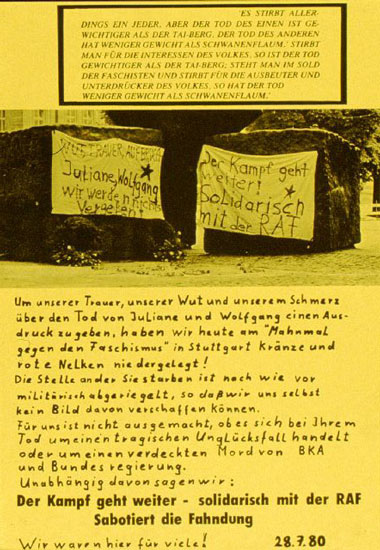 'ES STIRBT ALLER-
DINGS EIN JEDER, ABER DER TOD DES EINEN IST GE-
WICHTIGER ALS DER TAI-BERG, DER TOD DES ANDEREN
HAT WENIGER GEWICHT ALS SCHWANENFLAUM.' STIRBT
MAN FÜR DIE INTERESSEN DES VOLKES, SO IST DER TOD
GEWICHTIGER ALS DER TAI-BERG; STEHT MAN IM SOLD
DER FASCHISTEN UND STIRBT FÜR DIE AUSBEUTER UND
UNTERDRÜCKER DES VOLKES, SO HAT DER TOD
WENIGER GEWICHT ALS SCHWANENFLAUM.'
TRAUER,
Juliane, Wolfgang
wir werden nichts
Vergessen
Der Kampf geht
weiter!
Solidarisch
mit der RAF
Um unserer Trauer, unserer Wut und unserem Schmerz
über den Tod von Juliane und Wolfgang einen Aus-
druck zu geben, haben wir heute am "Mahnmal
gegen den Faschismus" in Stuttgart Kränze und
rote Nelken niedergelegt!
Die Stelle an der Sie starben ist nach wie vor
militärisch abgeriegelt, so daß wir uns selbst
kein Bild davon verschaffen können.
Für uns ist nicht ausgemacht, ob es sich bei Ihrem
Tod um einen tragischen Unglücksfall handelt
oder um einen verdeckten Mord von BKA
und Bundesregierung.
Unabhängig davon sagen wir:
Der Kampf geht weiter - solidarisch mit der RAF
Sabotiert die Fahndung
Wir waren hier für viele! 28.7.80